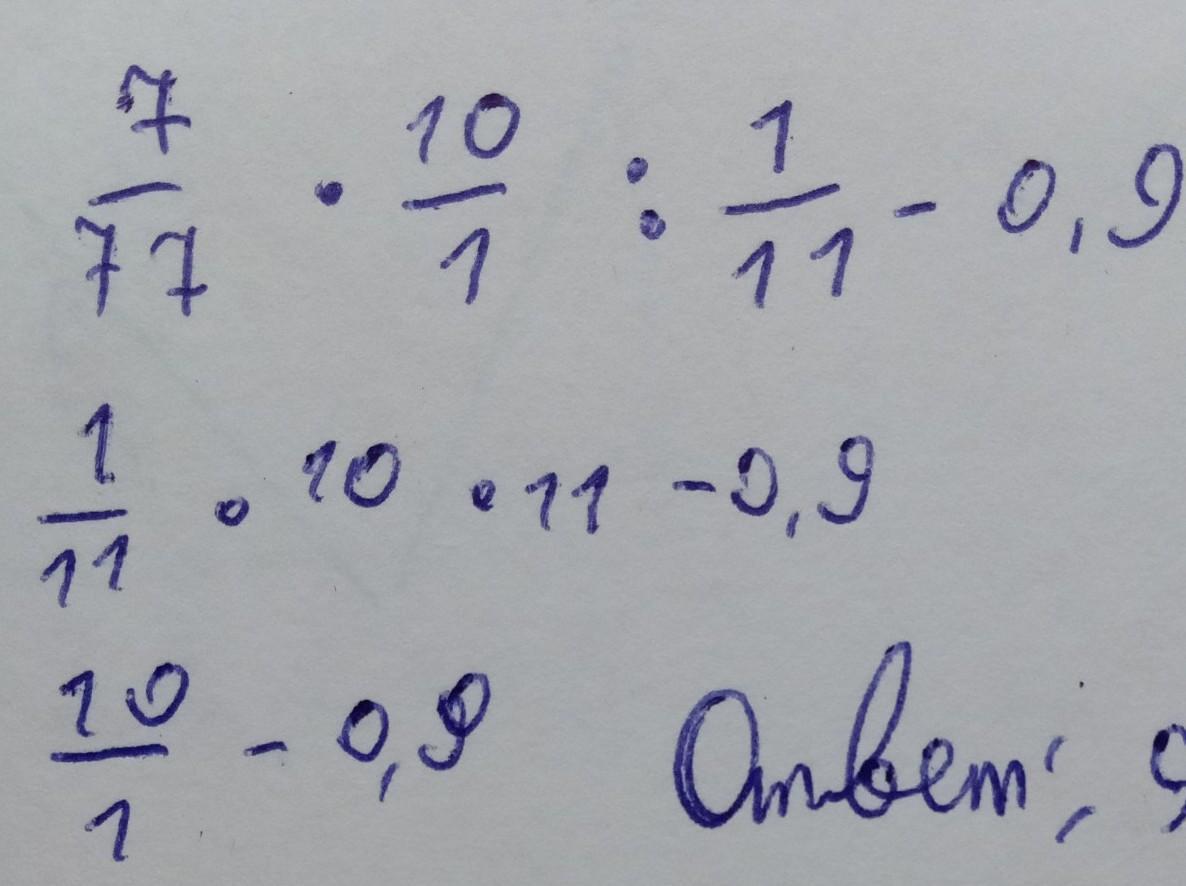 7/77 · 10/1 : 1/11 - 0,9
1/11 · 10 · 11 - 0,9
10/1 - 0,9 Ответ: